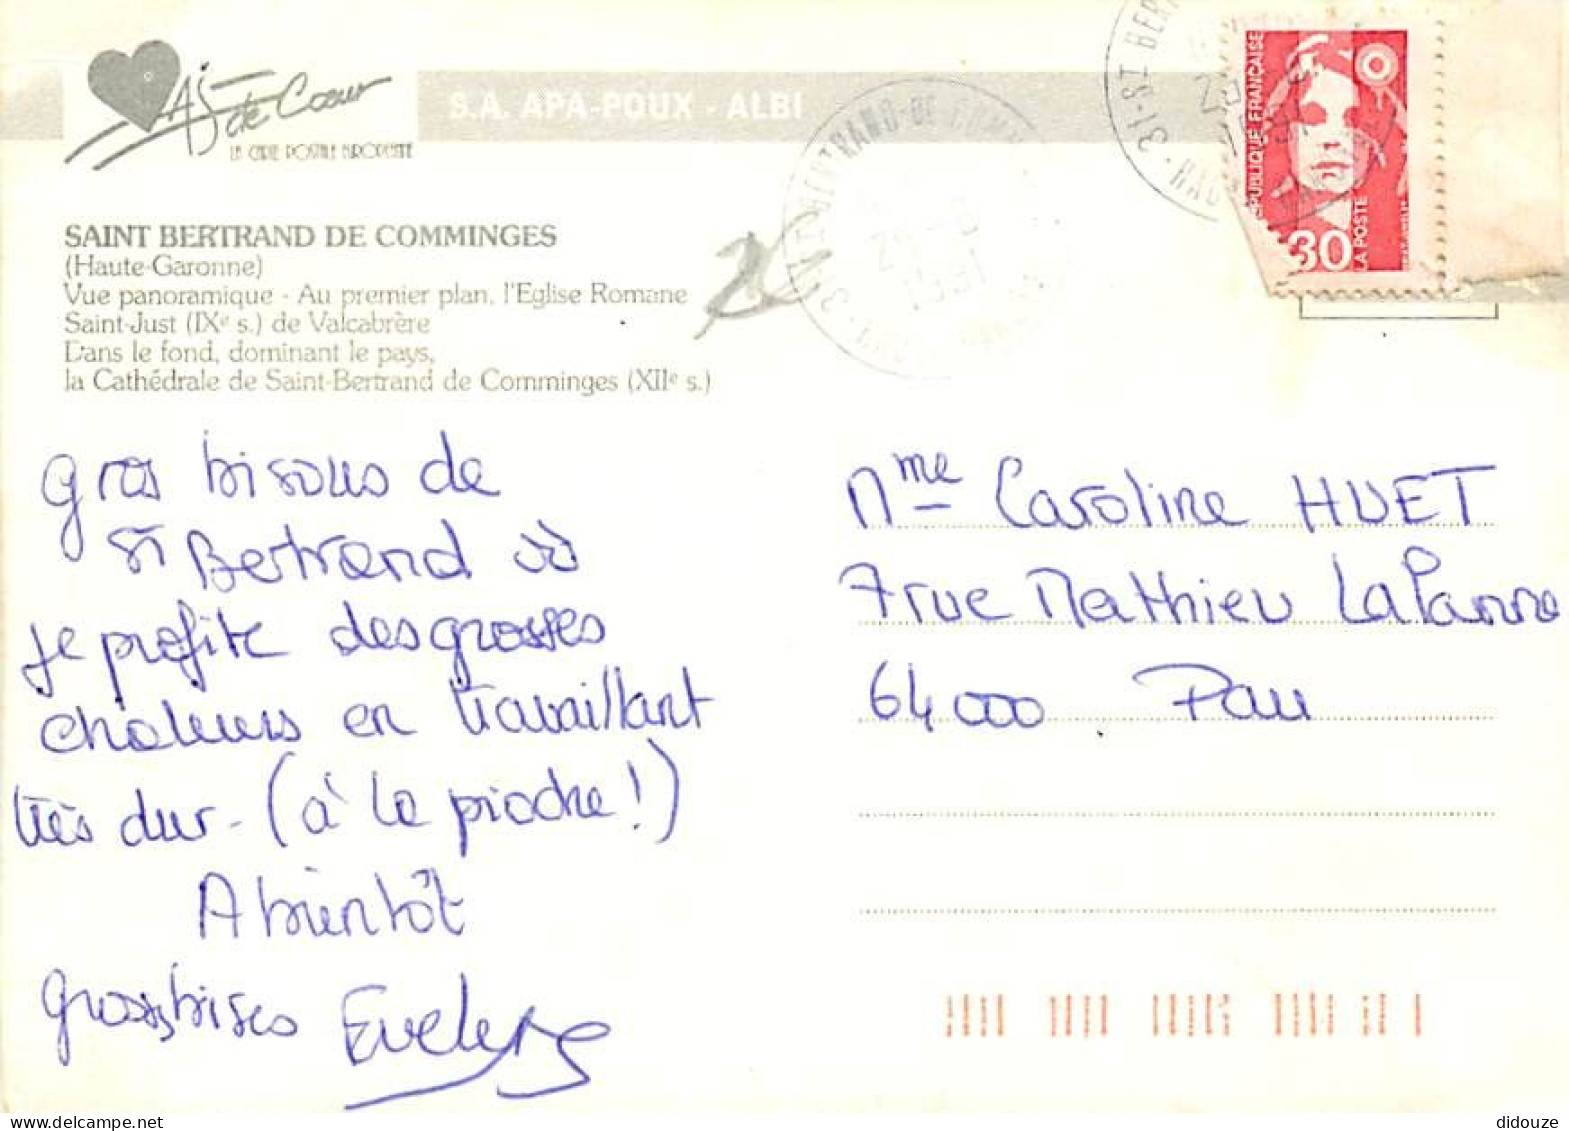 As de Coeur
LA CARTE POSTALE EUROPEENNE
S.A. APA-POUX - ALBI
SAINT BERTRAND DE COMMINGES
(Haute-Garonne)
Vue panoramique - Au premier plan, l'Eglise Romane
Saint-Just (IXe s.) de Valcabrère
Dans le fond, dominant le pays,
la Cathédrale de Saint-Bertrand de Comminges (XIIe s.)
31-ST BERTRAND-DE-COMM
1991
31-ST BER
REPUBLIQUE FRANÇAISE
30
LA POSTE
gros bisous de
St Bertrand où
je profite des grosses
chaleurs en travaillant
très dur. (à la pioche!)
A bientôt
grosses bises Evelyne
Mme Caroline HUET
7 rue Mathieu LaLanne
64000 Pau
didouze